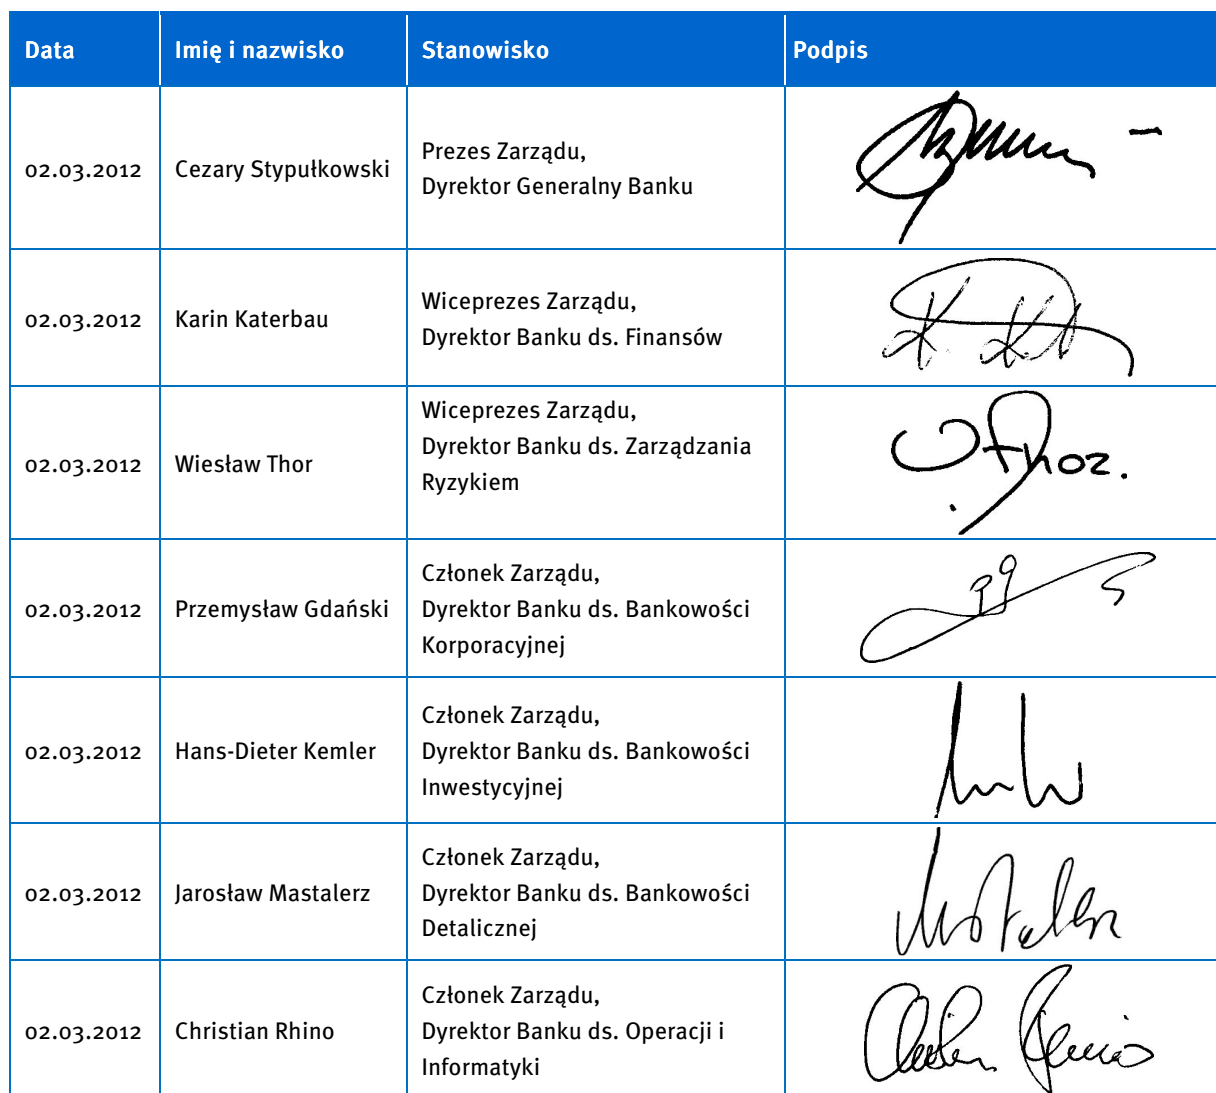 Data Imię i nazwisko Stanowisko Podpis
02.03.2012 Cezary Stypułkowski Prezes Zarządu,
Dyrektor Generalny Banku
02.03.2012 Karin Katerbau Wiceprezes Zarządu,
Dyrektor Banku ds. Finansów
02.03.2012 Wiesław Thor Wiceprezes Zarządu,
Dyrektor Banku ds. Zarządzania
Ryzykiem
02.03.2012 Przemysław Gdański Członek Zarządu,
Dyrektor Banku ds. Bankowości
Korporacyjnej
02.03.2012 Hans-Dieter Kemler Członek Zarządu,
Dyrektor Banku ds. Bankowości
Inwestycyjnej
02.03.2012 Jarosław Mastalerz Członek Zarządu,
Dyrektor Banku ds. Bankowości
Detalicznej
02.03.2012 Christian Rhino Członek Zarządu,
Dyrektor Banku ds. Operacji i
Informatyki